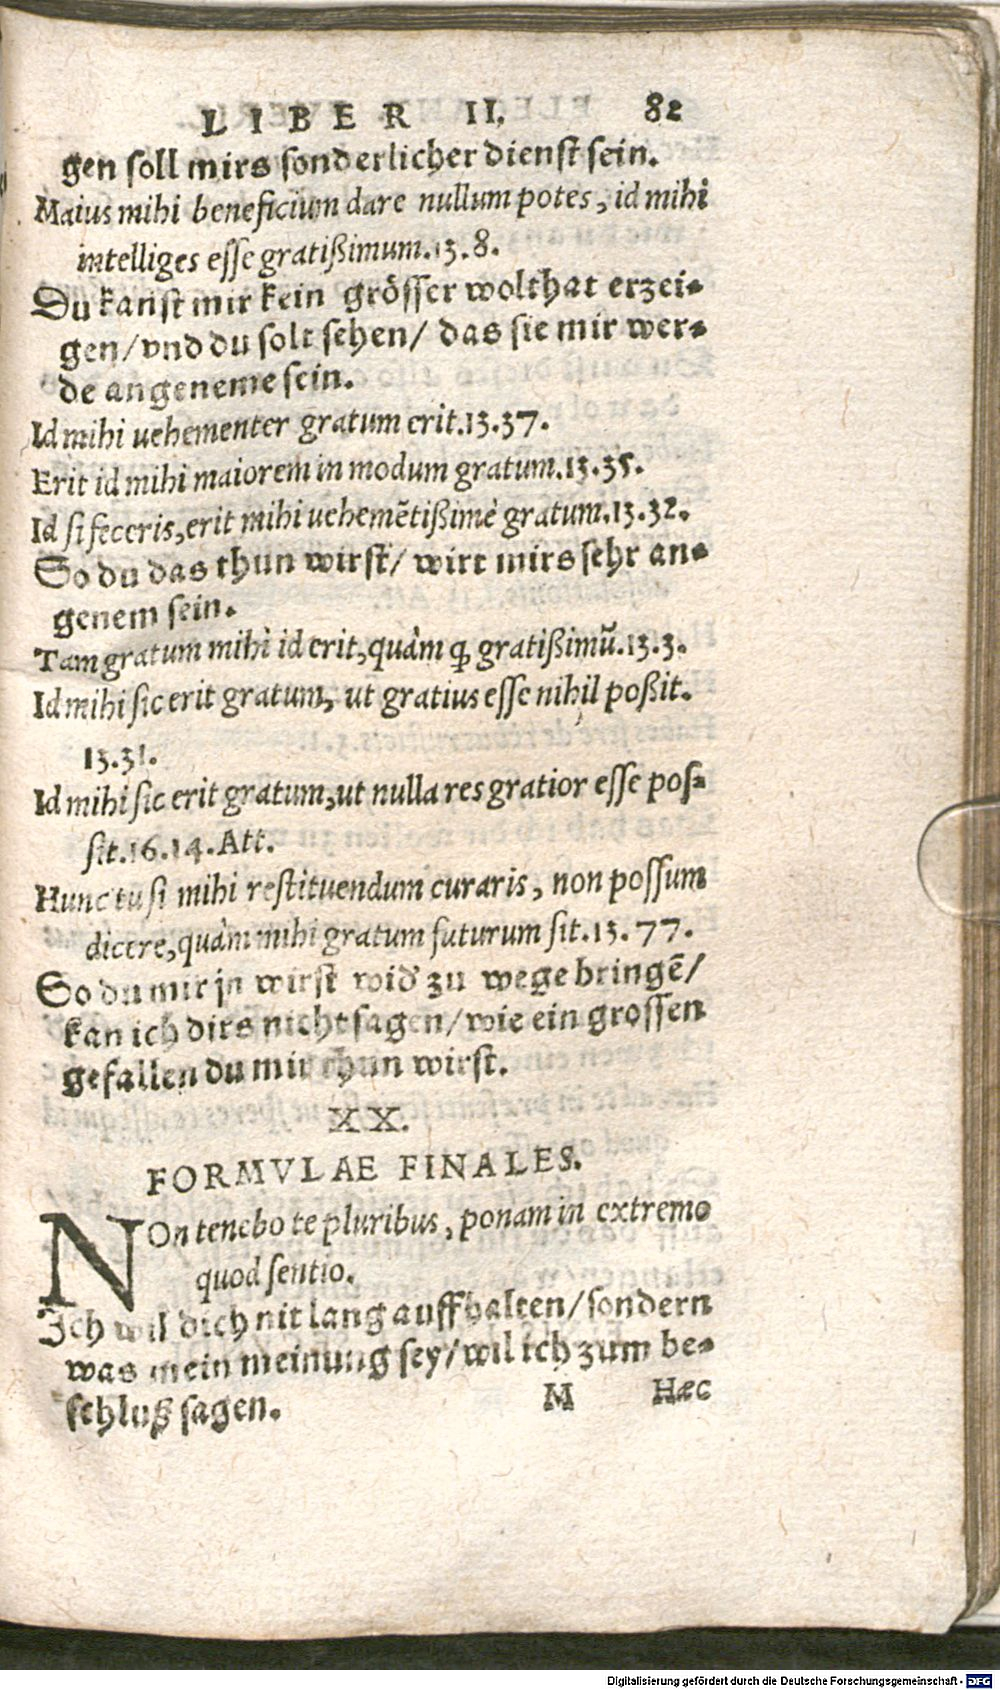 LIBER II. 82
gen soll mirs sonderlicher dienst sein.
Maius mihi beneficium dare nullum potes, id mihi
intelliges esse gratißimum. 13. 8.
Du kanst mir kein grösser wolthat erzei-
gen/ vnd du solt sehen/ das sie mir wer-
de angeneme sein.
Id mihi uehementer gratum erit. 13. 37.
Erit id mihi maiorem in modum gratum. 13. 35.
Id si feceris, erit mihi uehemẽtißimè gratum. 13. 32.
So du das thun wirst/ wirt mirs sehr an-
genem sein.
Tam gratum mihi id erit, quàm ꝙ gratißimũ. 13. 3.
Id mihi sic erit gratum, ut gratius esse nihil poßit.
13. 31.
Id mihi sic erit gratum, ut nulla res gratior esse pos-
sit. 16. 14. Att.
Hunc tu si mihi restituendum curaris, non possum
dicere, quàm mihi gratum futurum sit. 13. 77.
So du mir jn wirst wid' zu wege bringẽ/
kan ich dirs nicht sagen/ wie ein grossen
gefallen du mir thun wirst.
XX.
FORMVLAE FINALES.
NOn tenebo te pluribus, ponam in extremo
quod sentio.
Ich wil dich nit lang auffhalten/ sondern
was mein meinung sey/ wil ich zum be-
schluß sagen.
M Hæc
Digitalisierung gefördert durch die Deutsche Forschungsgemeinschaft - DFG